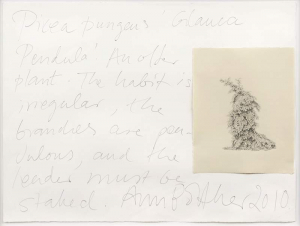 Picea pungens 'Glauca
Pendula' An older
plant. The habit is
irregular, the
branches are pen-
dulous, and the
leader must be
staked. Ann Böttcher 2010